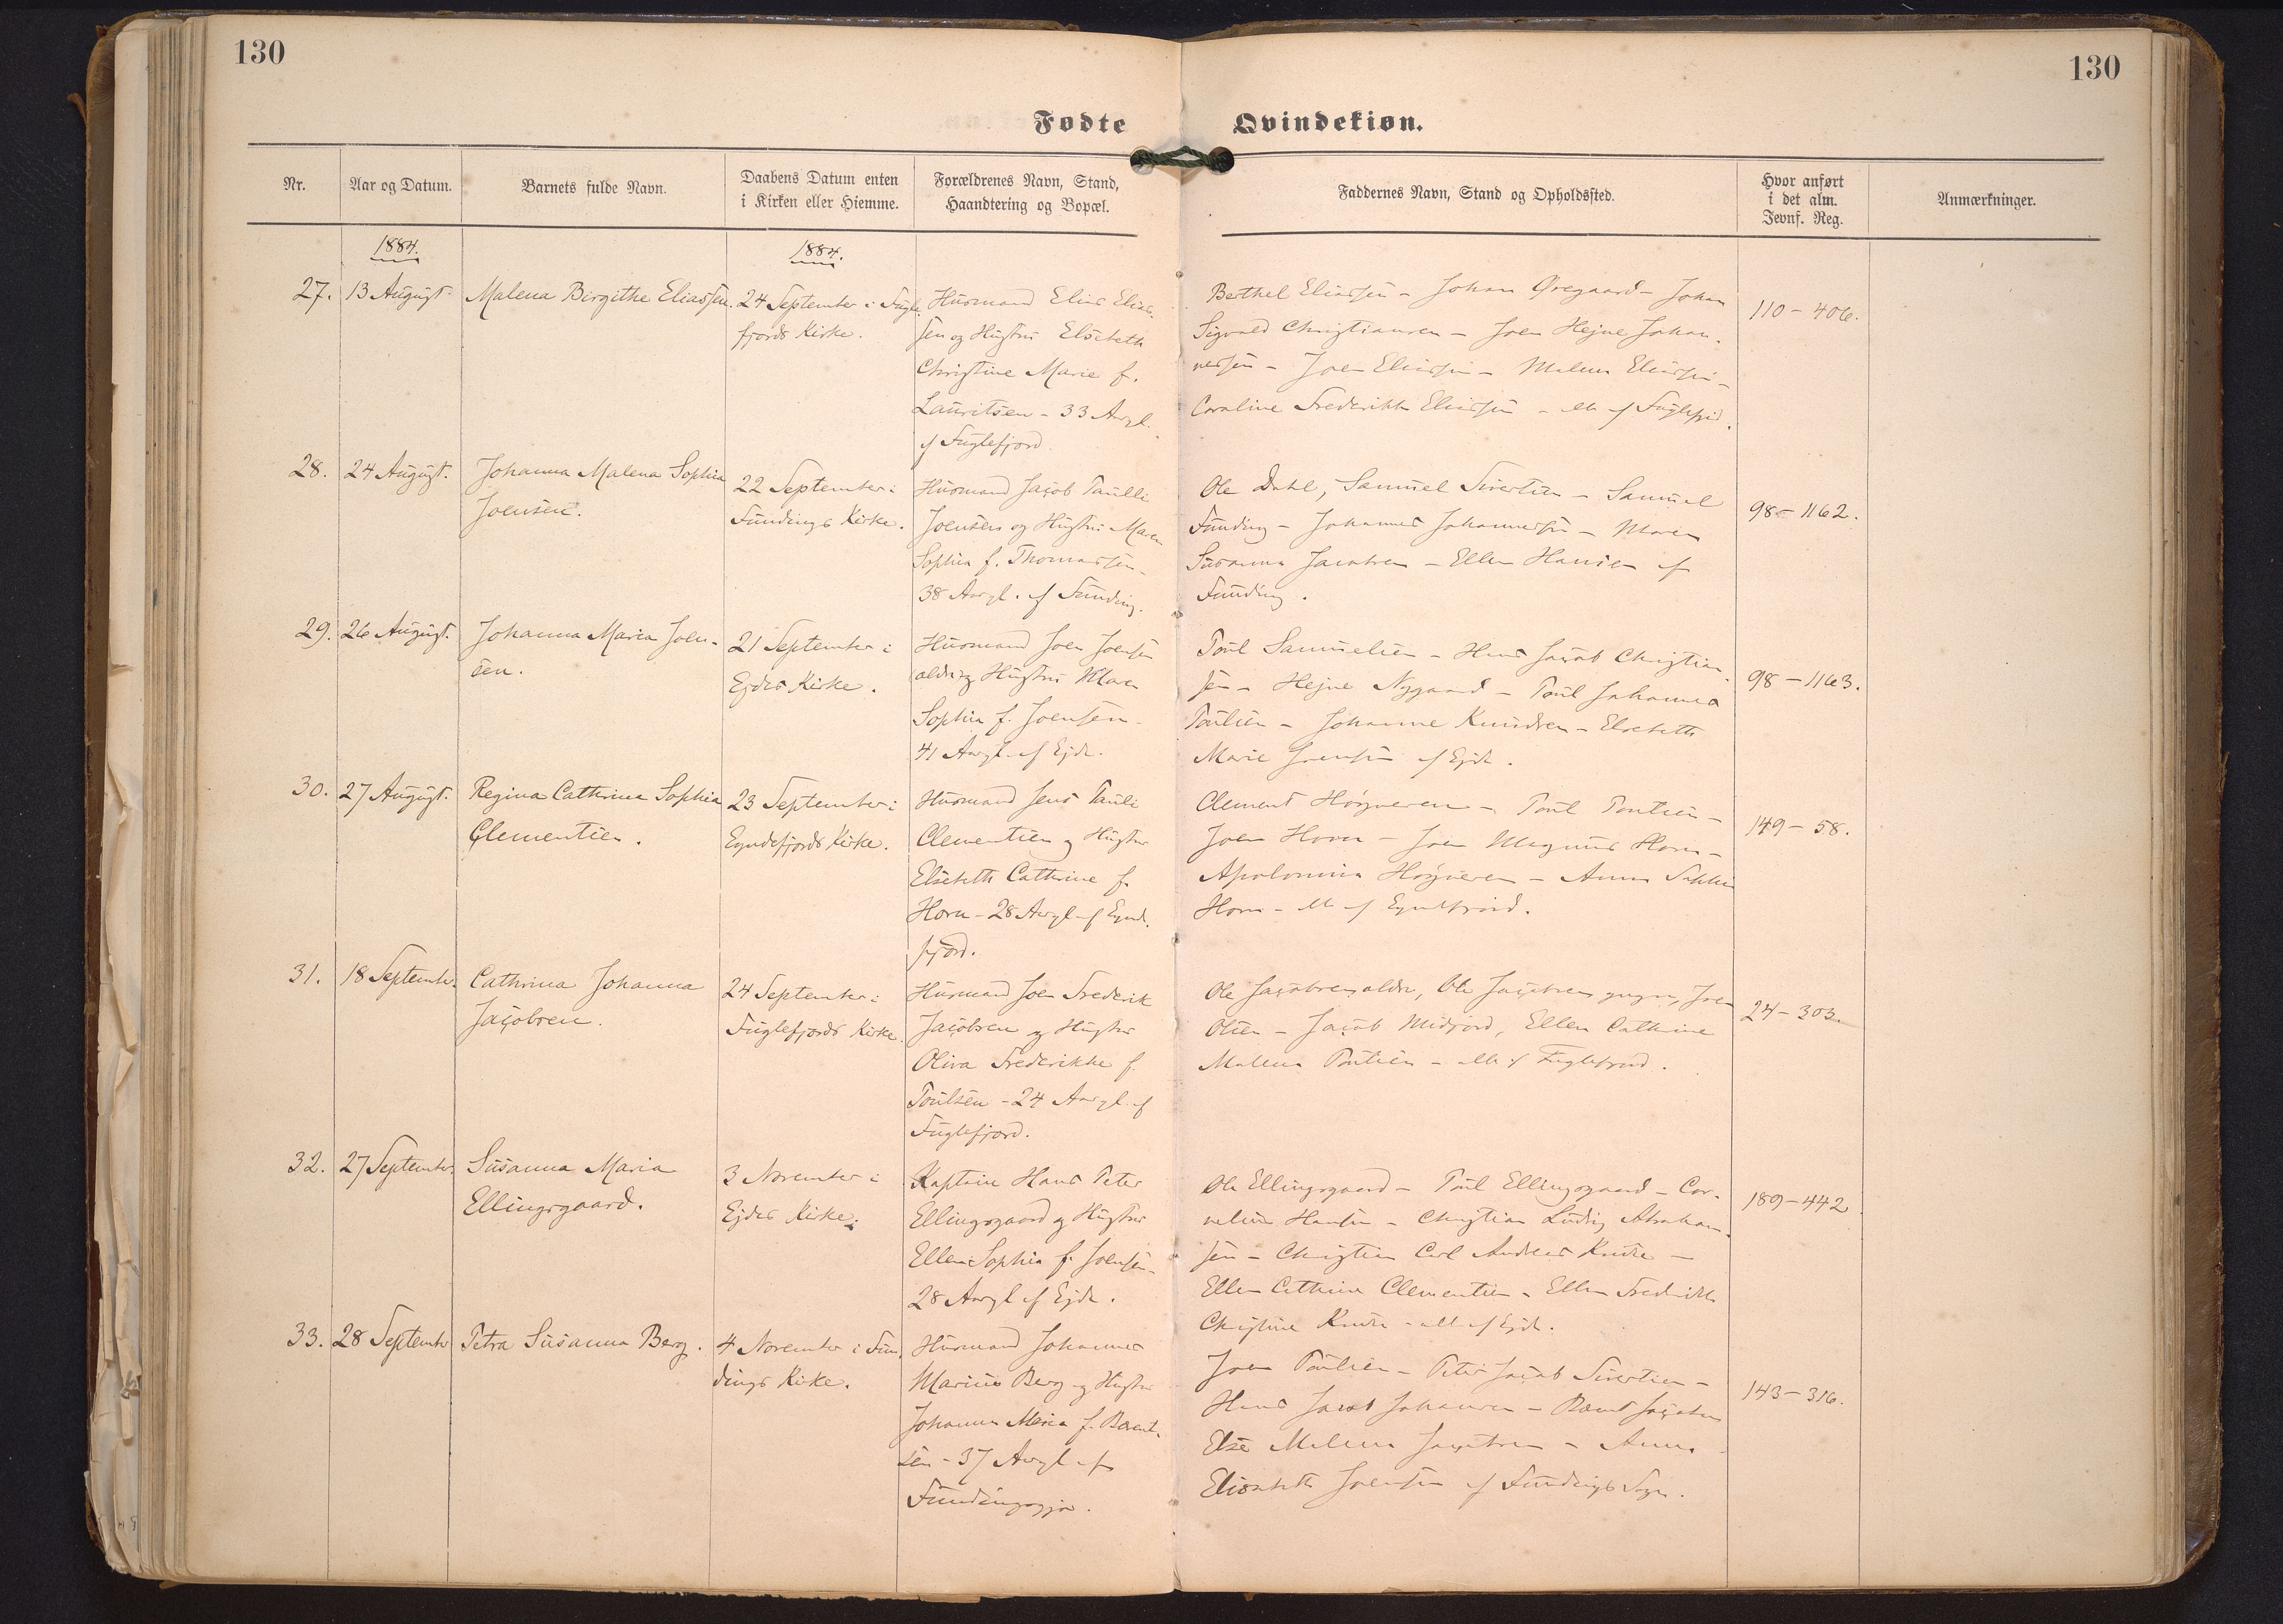 130
130
Fødte Qvindekiøn.
Nr.
Aar og Datum.
Barnets fulde Navn.
Daabens Datum enten
i Kirken eller Hiemme.
Forældrenes Navn, Stand,
Haandtering og Bopæl.
Faddernes Navn, Stand og Opholdssted.
Hvor anført
i det alm.
Jevnf. Reg.
Anmærkninger.
1884.
1884.
27.
13 August.
Malena Birgithe Eliassen.
24 September i Fugle
fjords Kirke.
Husmand Elias Elias-
sen og Hustru Elsebeth
Christine Marie f.
Lauritsen - 33 Aar gl.
af Fuglefjord.
Berthel Eliassen - Johan Øregaard - Johan
Sigvald Christiansen - Joen Hejne Johan-
nessen - Joen Eliassen - Malena Eliassen -
Caroline Frederikke Eliassen - alle af Fuglefjord.
110 - 406.
28.
24 August.
Johanna Malena Sophia
Joensen.
22 September i
Fundings Kirke.
Husmand Jacob Paulli
Joensen og Hustru Maren
Sophia f. Thomassen -
38 Aar gl. af Funding.
Ole Dahl, Samuel Sivertsen - Samuel
Funding - Johannes Johannessen - Maren
Susanna Jacobsen - Ellen Hansen af
Funding.
98 - 1162.
29.
26 August.
Johanna Maria Joen-
sen.
21 September i
Ejdes Kirke.
Husmand Joen Joensen
ældre og Hustru Maren
Sophia f. Joensen -
41 Aar gl. af Ejde.
Poul Samuelsen - Hans Jacob Christian-
sen - Hejne Nygaard - Poul Johannes
Poulsen - Johanne Knudsen - Elsebeth
Marie Joensen af Ejde.
98 - 1163.
30.
27 August.
Regina Cathrina Sophia
Clementsen.
23 September i
Eyndefjords Kirke.
Husmand Jens Pauli
Clementsen og Hustru
Elsebeth Cathrine f.
Horn - 28 Aar gl. af Eynde-
fjord.
Clement Højgaard - Poul Poulsen -
Joen Horn - Joen Magnus Horn -
Apolonia - Anna Sophia
Horn - alle af Eyndefjord.
149 - 58.
31.
18 September.
Cathrina Johanna
Jacobsen.
24 September i
Fuglefjords Kirke.
Husmand Joen Frederik
Jacobsen og Hustru
Oliva Frederikke f.
Poulsen - 24 Aar gl. af
Fuglefjord.
Ole Jacobsen ældre, Ole Jacobsen yngre, Joen
Olsen - Jacob Midjord, Ellen Cathrine
Malena Poulsen - alle af Fuglefjord.
24 - 303.
32.
27 September.
Susanna Maria
Ellingsgaard.
3 November i
Ejdes Kirke.
Kaptain Hans Peter
Ellingsgaard og Hustru
Ellen Sophia f. Joensen -
28 Aar gl. af Ejde.
Ole Ellingsgaard - Poul Ellingsgaard - Cor-
nelius Hansen - Christian Ludvig Abraham-
sen - Christian Carl Andreas Kruse -
Ellen Cathrine Clementsen - Ellen Frederikke
Christine Kruse - alle af Ejde.
189 - 442.
33.
28 September
Petra Susanna Berg.
4 November i Fun-
dings Kirke.
Husmand Johannes
Marius Berg og Hustru
Johanna Maria f. Barent-
sen - 37 Aar gl. af
Fundingsgjov.
Joen Poulsen - Peter Jacob Sivertsen -
Hans Jacob Johansen - Jacobsen
Else Malena Jacobsen - Anna
Elisabeth Joensen af Fundings Sogn.
143 - 316.